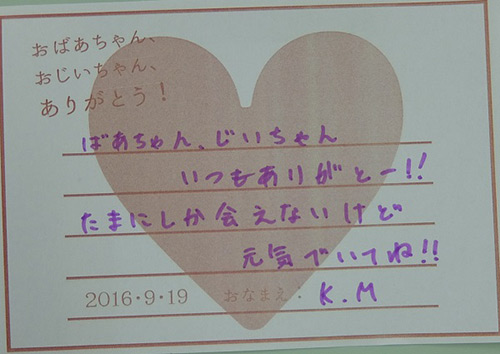 おばあちゃん、
おじいちゃん、
ありがとう！
ばあちゃん、じいちゃん
いつもありがとー!!
たまにしか会えないけど
元気でいてね!!
2016・9・19 おなまえ・ K.M